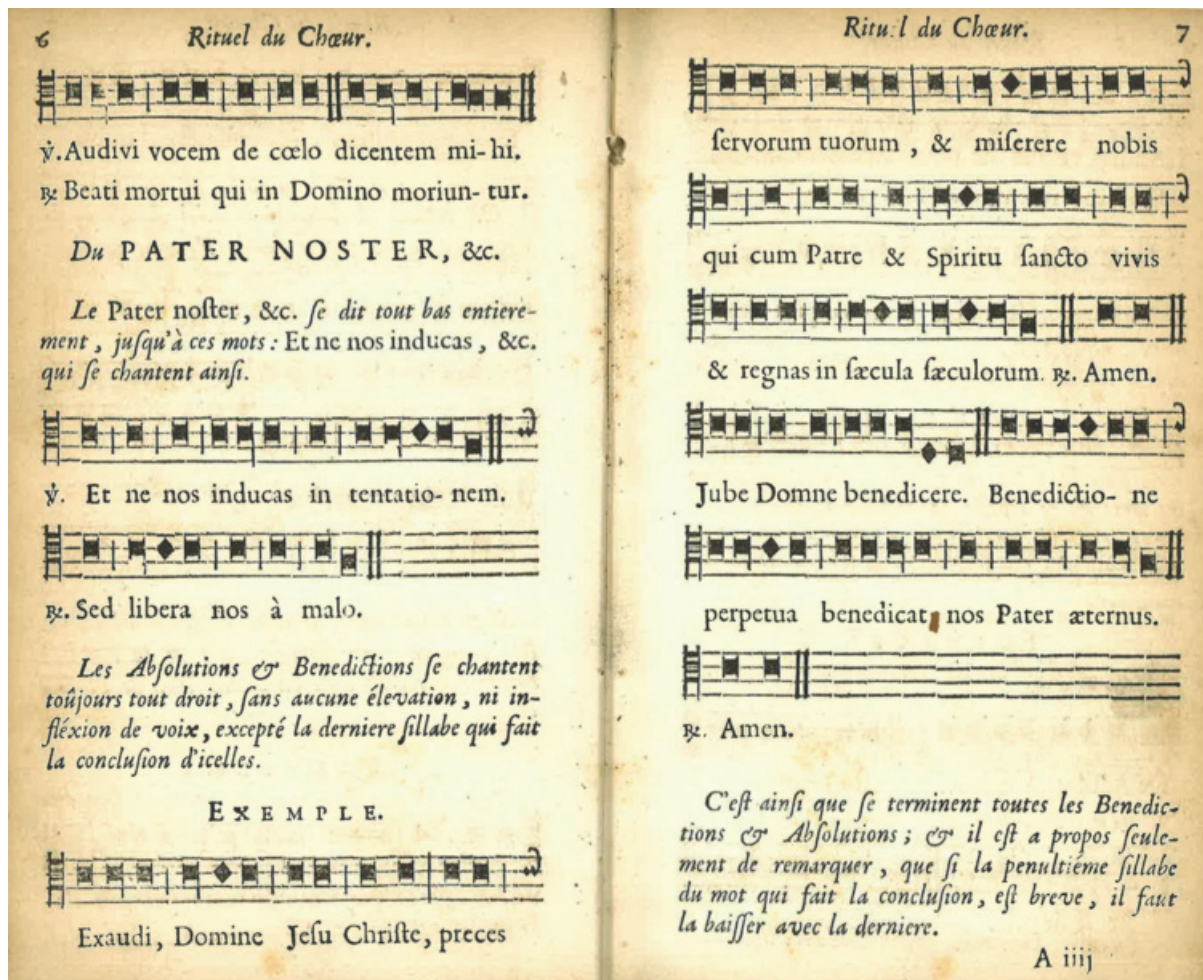 6 Rituel du Chœur.
℣. Audivi vocem de cœlo dicentem mi-hi.
℟ Beati mortui qui in Domino moriun-tur.
Du PATER NOSTER, &c.
Le Pater noſter, &c. ſe dit tout bas entiere-
ment, juſqu'à ces mots: Et ne nos inducas, &c.
qui ſe chantent ainſi.
℣. Et ne nos inducas in tentatio-nem.
℟. Sed libera nos à malo.
Les Abſolutions & Benedictions ſe chantent
toûjours tout droit, ſans aucune élevation, ni in-
fléxion de voix, excepté la derniere ſillabe qui fait
la concluſion d'icelles.
EXEMPLE.
Exaudi, Domine Jeſu Chriſte, preces
Rituel du Chœur. 7
ſervorum tuorum, & miſerere nobis
qui cum Patre & Spiritu ſancto vivis
& regnas in ſæcula ſæculorum. ℟. Amen.
Jube Domne benedicere. Benedictio-ne
perpetua benedicat nos Pater æternus.
℟. Amen.
C'eſt ainſi que ſe terminent toutes les Benedic-
tions & Abſolutions; & il eſt a propos ſeule-
ment de remarquer, que ſi la penultiéme ſillabe
du mot qui fait la concluſion, eſt breve, il faut
la baiſſer avec la derniere.
A iiij